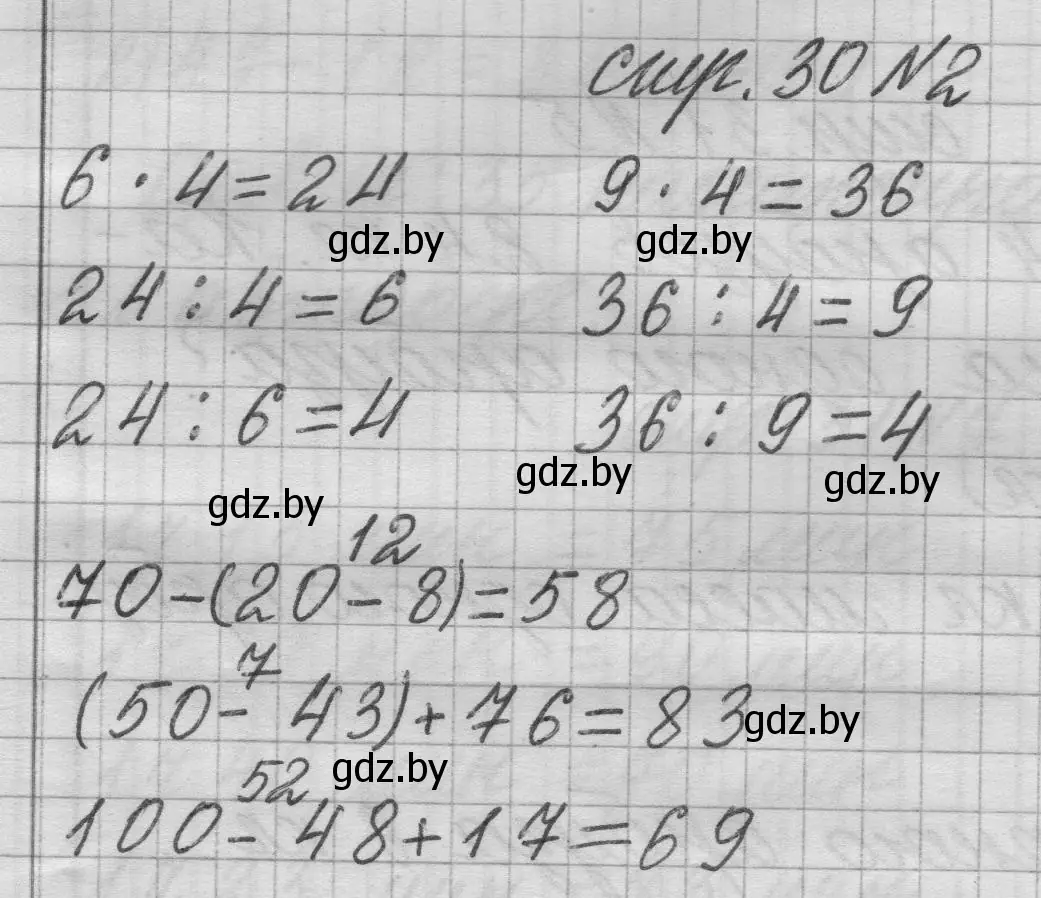 стр. 30 №2
6 · 4 = 24 9 · 4 = 36
gdz.by gdz.by
24 : 4 = 6 36 : 4 = 9
24 : 6 = 4 36 : 9 = 4
gdz.by gdz.by gdz.by
12
70 - (20 - 8) = 58
7
(50 - 43) + 76 = 83 gdz.by
52 gdz.by
100 - 48 + 17 = 69